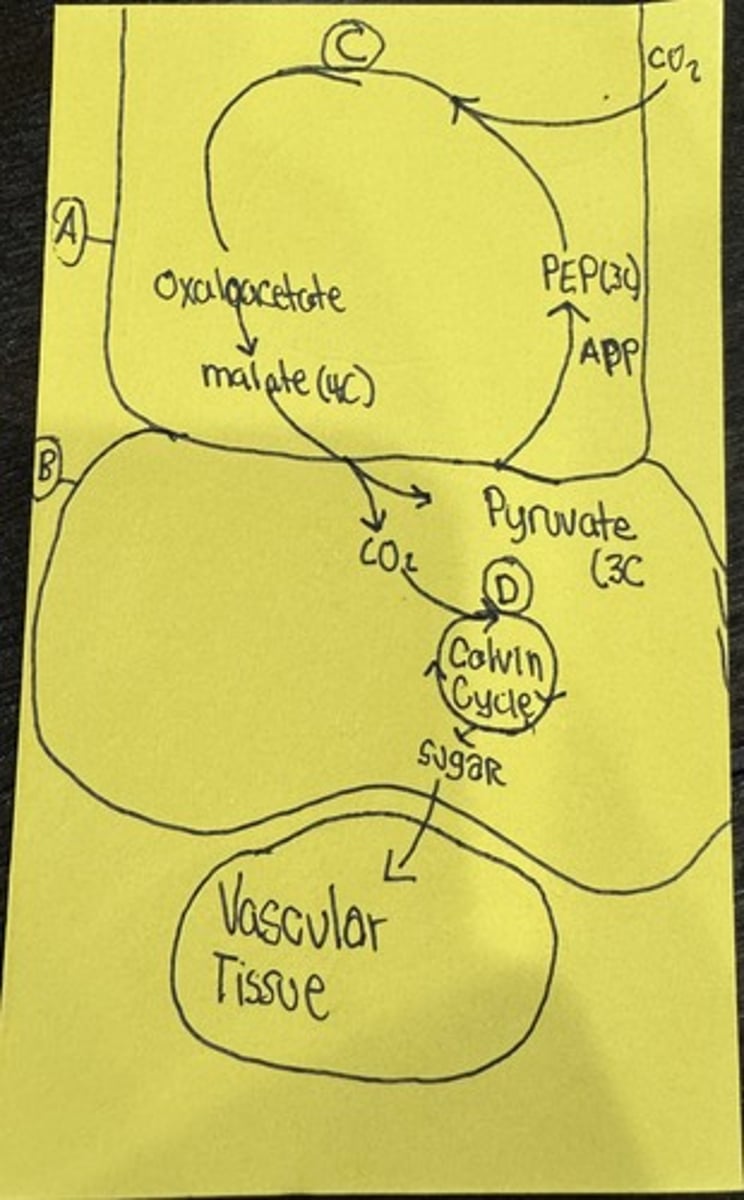 C
CO₂
A
Oxaloacetate
PEP(3C)
ADP
malate (4C)
B
Pyruvate
(3C
CO₂
D
Calvin
Cycle
sugar
Vascular
Tissue